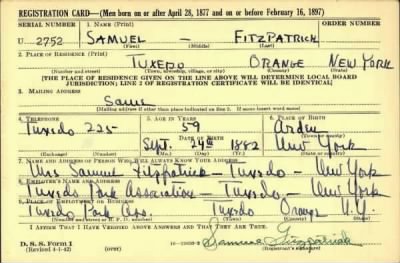 REGISTRATION CARD—(Men born on or after April 28, 1877 and on or before February 16, 1897)
SERIAL NUMBER 1. NAME (Print) ORDER NUMBER
U 2752 SAMUEL — FITZPATRICK
(First) (Middle) (Last)
2. PLACE OF RESIDENCE (Print)
TUXEDO ORANGE NEW YORK
(Number and street) (Town, township, village, or city) (County) (State)
[THE PLACE OF RESIDENCE GIVEN ON THE LINE ABOVE WILL DETERMINE LOCAL BOARD
JURISDICTION; LINE 2 OF REGISTRATION CERTIFICATE WILL BE IDENTICAL]
3. MAILING ADDRESS
Same
(Mailing address if other than place indicated on line 2. If same insert word same)
4. TELEPHONE 5. AGE IN YEARS 6. PLACE OF BIRTH
Tuxedo 225 59 Arden
DATE OF BIRTH (Town or county)
Sept. 24th 1882 New York
(Exchange) (Number) (Mo.) (Day) (Yr.) (State or country)
7. NAME AND ADDRESS OF PERSON WHO WILL ALWAYS KNOW YOUR ADDRESS
Mrs Samuel Fitzpatrick — Tuxedo — New York
8. EMPLOYER'S NAME AND ADDRESS
Tuxedo Park Association — Tuxedo — New York
9. PLACE OF EMPLOYMENT OR BUSINESS
Tuxedo Park Ass. Tuxedo Orange N.Y.
(Number and street or R. F. D. number) (Town) (County) (State)
I AFFIRM THAT I HAVE VERIFIED ABOVE ANSWERS AND THAT THEY ARE TRUE.
D. S. S. Form 1
(Revised 4-1-42) (over) Samuel Fitzpatrick
(Registrant's signature)